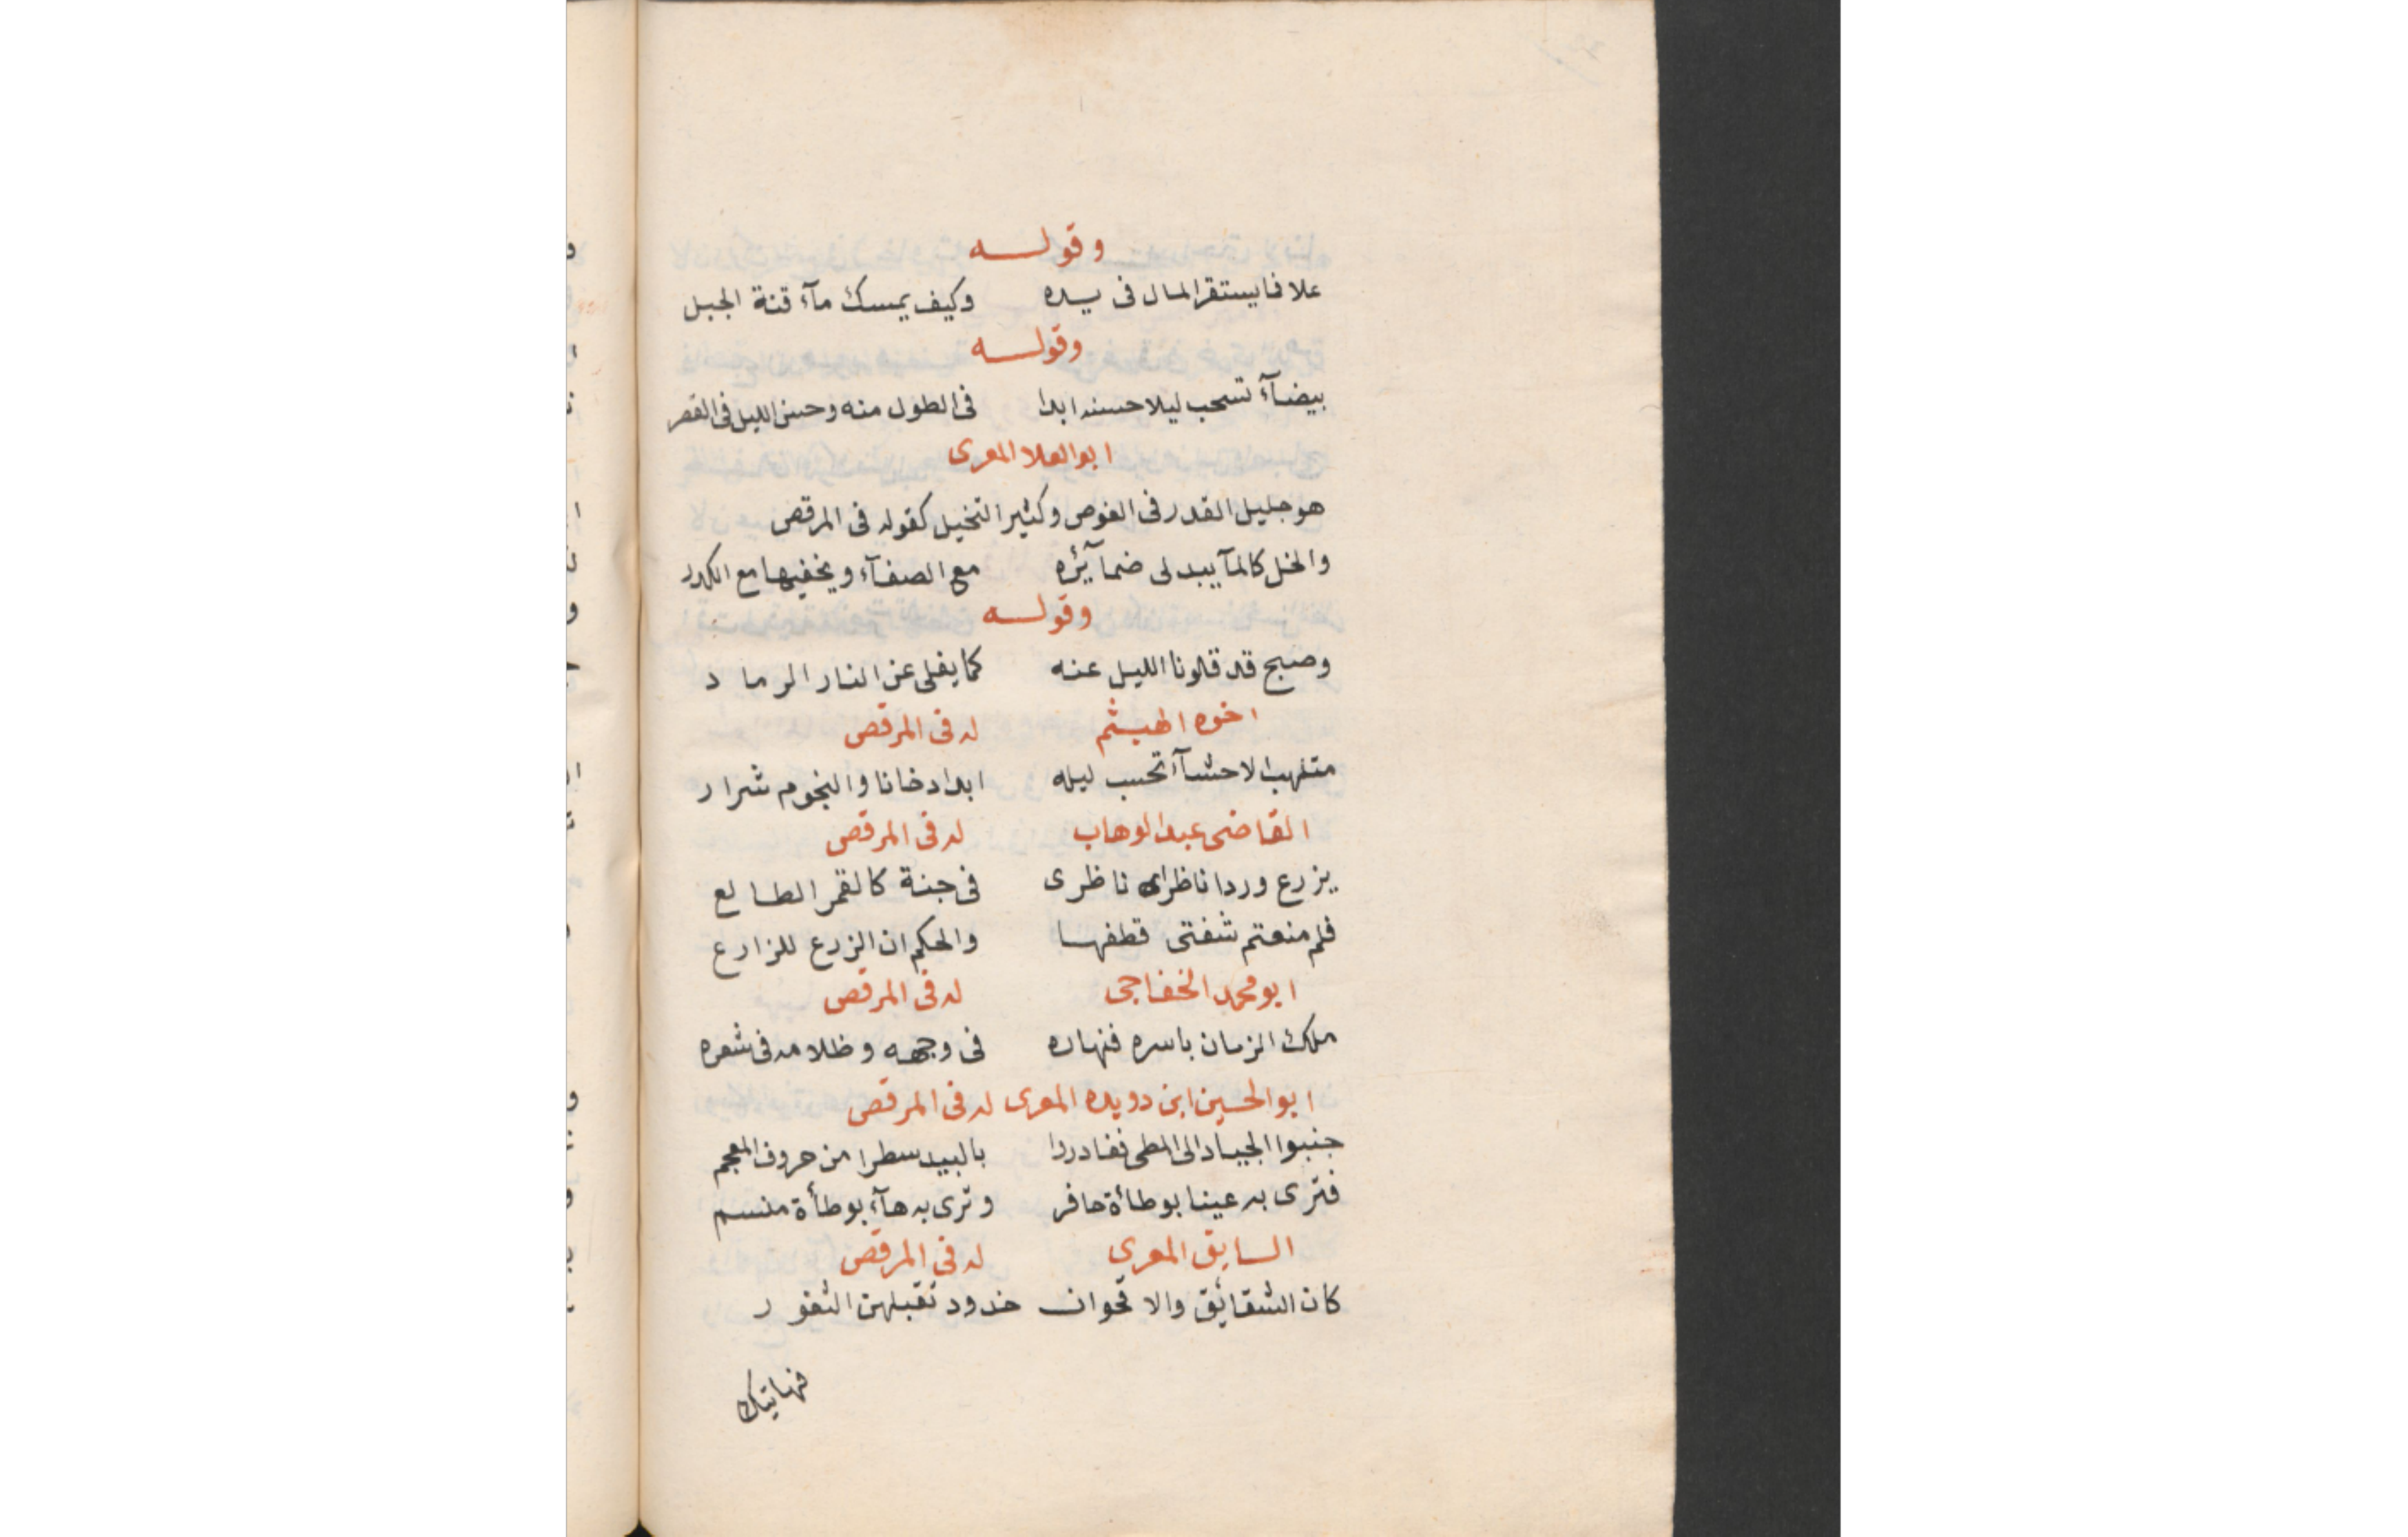 وقولــــه
علا فما يستقر المال فى يــده وكيف يمسك مآء قنة الجبل
وقولــــه
بيضآء تسحب ليلا حسنه ابدا فى الطول منه وحسن الليل فى القصر
ابو العلا المعرى
هو جليل القدر فى الغوص وكثير التخيل كقوله فى المرقص
والخل كالمآ يبد لى ضمآئره مع الصفآء ويخفيها مع الكدر
وقولــــه
وصبح قد فلونا الليل عنه كما يفلى عن النار الرماد
اخوه الهيثم له فى المرقص
متلهب الاحشآء تحسب ليله ابدا دخانا والنجوم شرار
القاضى عبد الوهاب له فى المرقص
يزرع وردا ناظرا ناظرى فى جنة كالقمر الطالع
فلم منعتم شفتى قطفها والحكم ان الزرع للزارع
ابو محمد الخفاجى له فى المرقص
ملك الزمان باسره فنهاره فى وجهه وظلامه فى شعره
ابو الحسين ابن دويده المعرى له فى المرقص
جنبوا الجياد الى المطى فغادروا بالبيد سطرا من حروف المعجم
فترى به عينا بوطأة حافر وترى به هآء بوطأة منسم
السابق المعرى له فى المرقص
كان الشقائق والاقحوان خدود تقبلهن الثغور
فهاتيك